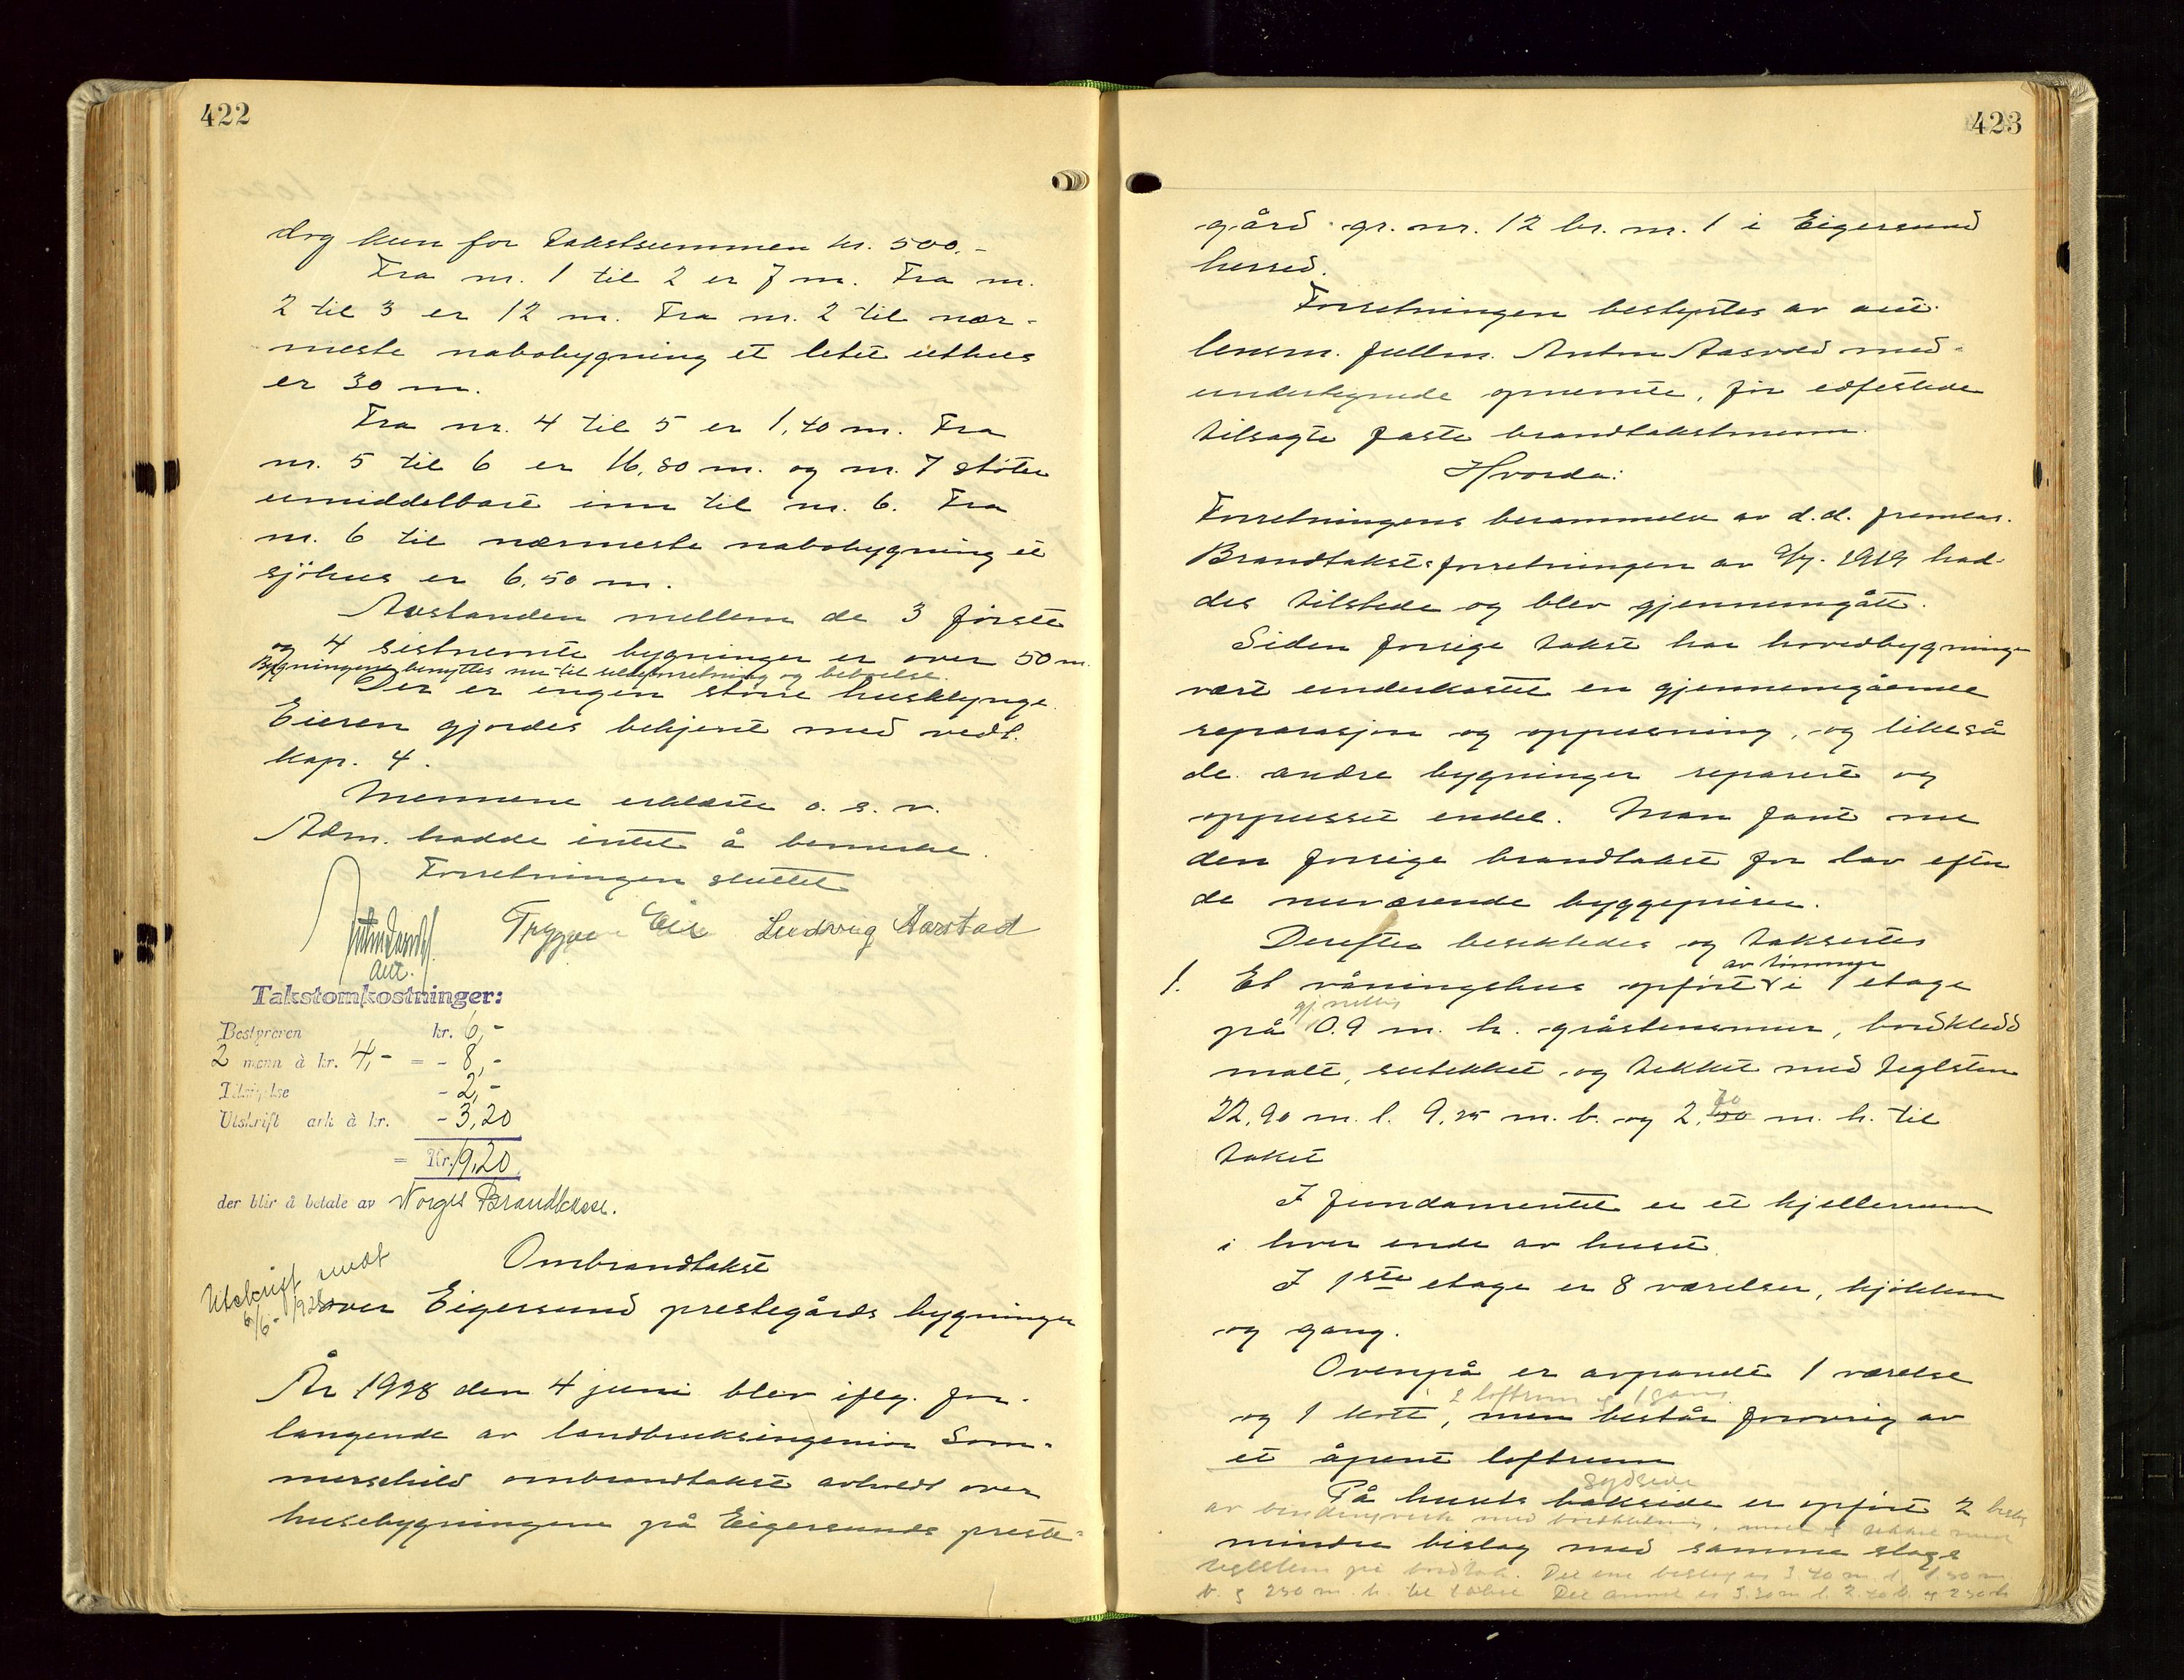 422
dog kun for takstsummen kr. 500.-
Fra nr. 1 til 2 er 7 m. Fra nr.
2 til 3 er 12 m. Fra nr. 2 til nær-
meste nabobygning et litet uthus
er 30 m.
Fra nr. 4 til 5 er 1,40 m. Fra
nr. 5 til 6 er 16,80 m. og nr. 7 støter
umiddelbart inn til nr. 6. Fra
nr. 6 til nærmeste nabobygning et
sjøhus er 6,50 m.
Avstanden mellem de 3 første
og 4 sistnevnte bygninger er over 50 m.
Bygningene benyttes nu til og beboelse.
Der er ingen større husklynge.
Eieren gjordes bekjent med vedt.
kap. 4.
Mennene erklærte o. s. v.
Adm. hadde intet å bemerke.
Forretningen sluttet
Trygve Eie Ludvig Aarstad
aut.
Takstomkostninger:
Bestyreren kr. 6,-
2 menn à kr. 4,- = - 8,-
Tilsigelse - 2,-
Utskrift ark à kr. - 3,20
= Kr. 19,20
der blir å betale av Norges Brandkasse.
Ombrandtakst
Utskrift sendt
6/6-1928
over Eigersund prestegårds bygninger
År 1928 den 4 juni blev iflg. for-
langende av landbruksingeniør Som-
merschild ombrandtakst avholdt over
husebygningene på Eigersunds preste-
423
gård gr. nr. 12 br. nr. 1 i Eigersund
herred.
Forretningen bestyrtes av aut.
lensm. fullm. Anton Aasvold med
undertegnede opnevnte, for edfestede
tilsagte faste brandtakstmenn.
Hvorda:
Forretningens berammelse av d.d. fremlas.
Brandtakstforretningen av 9/7. 1919 had-
des tilstede og blev gjennemgått.
Siden forrige takst har hovedbygningen
vært underkastet en gjennemgående
reparasjon og oppussning, og likeså
de andre bygninger reparert og
oppusset endel. Man fant nu
den forrige brandtakst for lav efter
de nuværende byggepriser.
Derefter besiktedes og takseertes
av tømmer
1. Et våningshus opført i 1 etage
gj.snitlig
på 0.9 m. h. gråstensmur, bordkledd
malt, sutekket og tekket med teglsten
70
22,90 m. l. 9,25 m. b. og 2,50 m. h. til
taket
I fundamentet er et kjellerrum
i hver ende av huset.
I 1ste etage er 8 værelser, kjøkken
og gang.
Ovenpå er avpanelt 1 værelse
2 loftrum og 1 gang
og 1 kott, men består forøvrig av
et åpent loftrum
sydside
På husets bakside er opført 2
av bindingsverk med bordkledning, malt og tekket med
mindre bislag med samme slags
teglsten på bordtak. Det ene bislag er 3.40 m. l. 1.50 m
b. og 2.50 m. h. til taket Det annet er 3.30 m l. 2.40 b. og 2.50 h